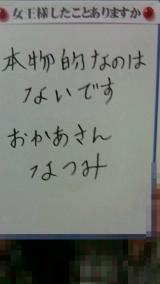 女王様したことありますか
本物的なのは
ないです
おかあさん
なつみ